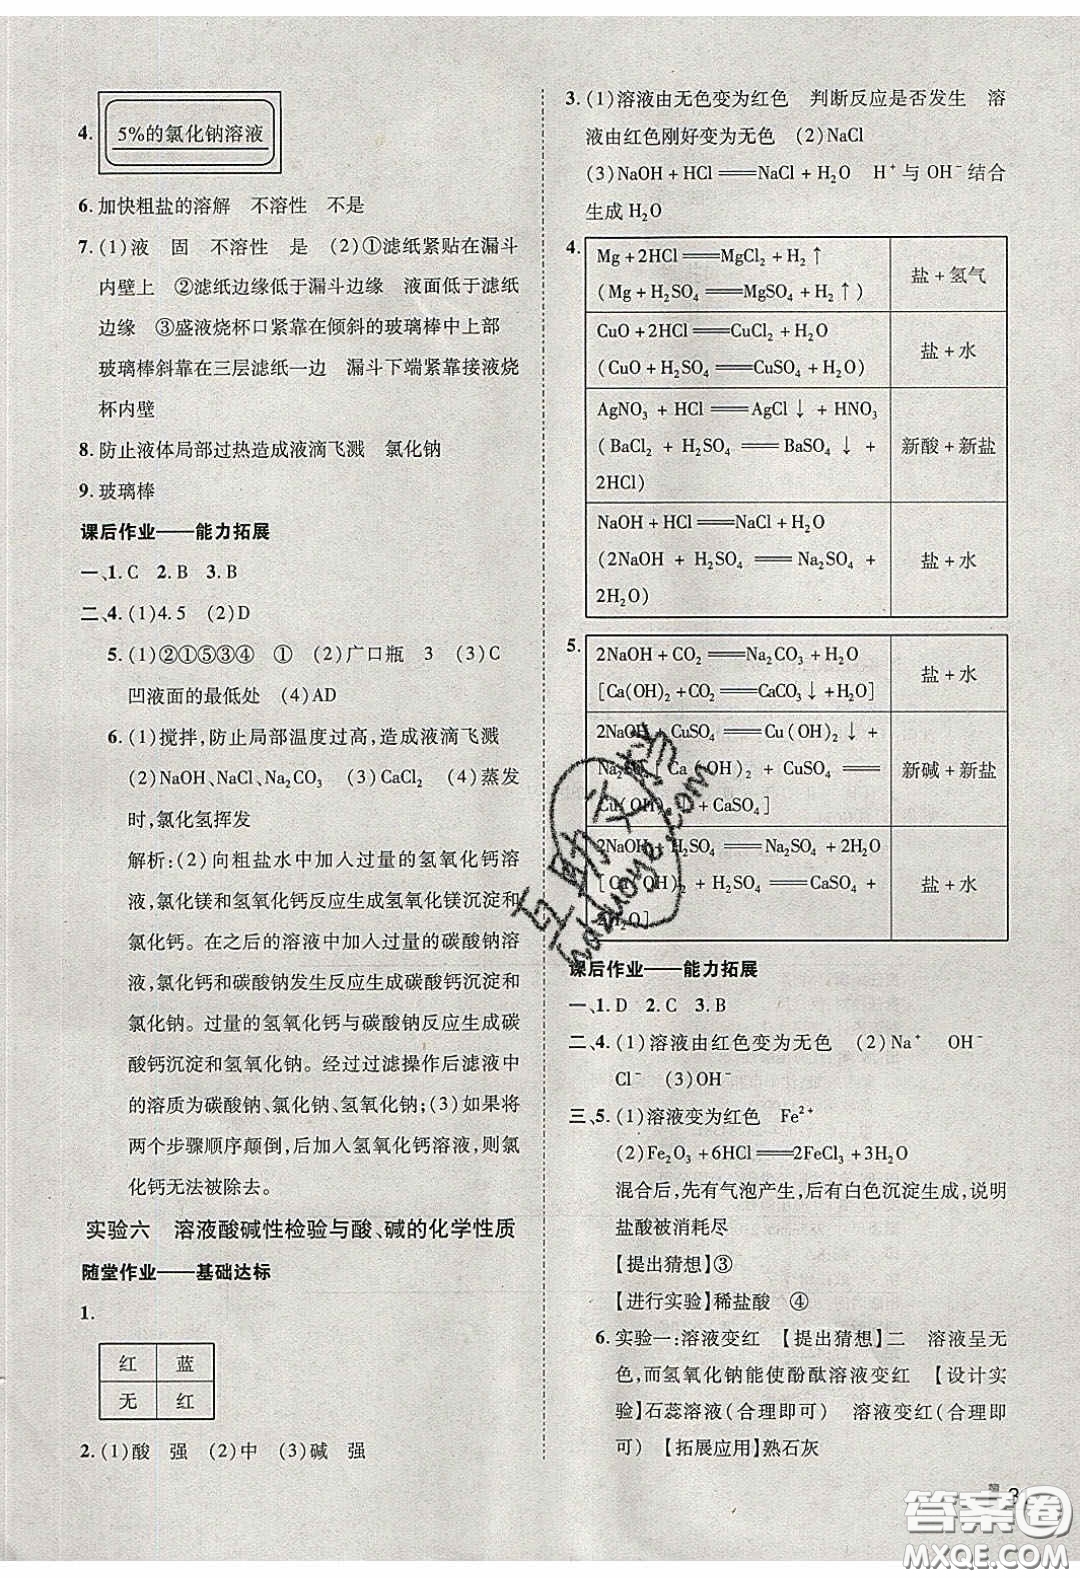 4. 5%的氯化钠溶液
6. 加快粗盐的溶解　不溶性　不是
7. (1)液　固　不溶性　是　(2)①滤纸紧贴在漏斗
内壁上　②滤纸边缘低于漏斗边缘　液面低于滤纸
边缘　③盛液烧杯口紧靠在倾斜的玻璃棒中上部
玻璃棒斜靠在三层滤纸一边　漏斗下端紧靠接液烧
杯内壁
8. 防止液体局部过热造成液滴飞溅　氯化钠
9. 玻璃棒
课后作业——能力拓展
一、1. C　2. B　3. B
二、4. (1)4.5　(2)D
5. (1)②①⑤③④　①　(2)广口瓶　3　(3)C
凹液面的最低处　(4)AD
6. (1)搅拌,防止局部温度过高,造成液滴飞溅
(2)NaOH、NaCl、Na₂CO₃　(3)CaCl₂　(4)蒸发
时,氯化氢挥发
解析:(2)向粗盐水中加入过量的氢氧化钙溶
液,氯化镁和氢氧化钙反应生成氢氧化镁沉淀和
氯化钙。在之后的溶液中加入过量的碳酸钠溶
液,氯化钙和碳酸钠发生反应生成碳酸钙沉淀和
氯化钠。过量的氢氧化钙与碳酸钠反应生成碳
酸钙沉淀和氢氧化钠。经过过滤操作后滤液中
的溶质为碳酸钠、氯化钠、氢氧化钠;(3)如果将
两个步骤顺序颠倒,后加入氢氧化钙溶液,则氯
化钙无法被除去。
实验六　溶液酸碱性检验与酸、碱的化学性质
随堂作业——基础达标
1.
红　蓝
无　红
2. (1)酸　强　(2)中　(3)碱　强
3. (1)溶液由无色变为红色　判断反应是否发生　溶
液由红色刚好变为无色　(2)NaCl
(3)NaOH + HCl══NaCl + H₂O　H⁺与 OH⁻结合
生成 H₂O
4.
Mg + 2HCl══MgCl₂ + H₂↑
(Mg + H₂SO₄══MgSO₄ + H₂↑)
盐 + 氢气
CuO + 2HCl══CuCl₂ + H₂O
(CuO + H₂SO₄══CuSO₄ + H₂O)
盐 + 水
AgNO₃ + HCl══AgCl↓ + HNO₃
(BaCl₂ + H₂SO₄══BaSO₄↓ +
2HCl)
新酸 + 新盐
NaOH + HCl══NaCl + H₂O
(2NaOH + H₂SO₄══Na₂SO₄ +
2H₂O)
盐 + 水
5.
2NaOH + CO₂══Na₂CO₃ + H₂O
[Ca(OH)₂ + CO₂══CaCO₃↓ + H₂O]
盐 + 水
2NaOH + CuSO₄══Cu(OH)₂↓ +
Na₂SO₄[Ca(OH)₂ + CuSO₄══
Cu(OH)₂↓ + CaSO₄]
新碱 + 新盐
2NaOH + H₂SO₄══Na₂SO₄ + 2H₂O
[Ca(OH)₂ + H₂SO₄══CaSO₄ +
2H₂O]
盐 + 水
课后作业——能力拓展
一、1. D　2. C　3. B
二、4. (1)溶液由红色变为无色　(2)Na⁺　OH⁻
Cl⁻　(3)OH⁻
三、5. (1)溶液变为红色　Fe²⁺
(2)Fe₂O₃ + 6HCl══2FeCl₃ + 3H₂O
混合后,先有气泡产生,后有白色沉淀生成,说明
盐酸被消耗尽
【提出猜想】③
【进行实验】稀盐酸　④
6. 实验一:溶液变红　【提出猜想】二　溶液呈无
色,而氢氧化钠能使酚酞溶液变红　【设计实
验】石蕊溶液(合理即可)　溶液变红(合理即
可)　【拓展应用】熟石灰
3
互助文档
huzhuoye.com
答案圈
MXQE.COM